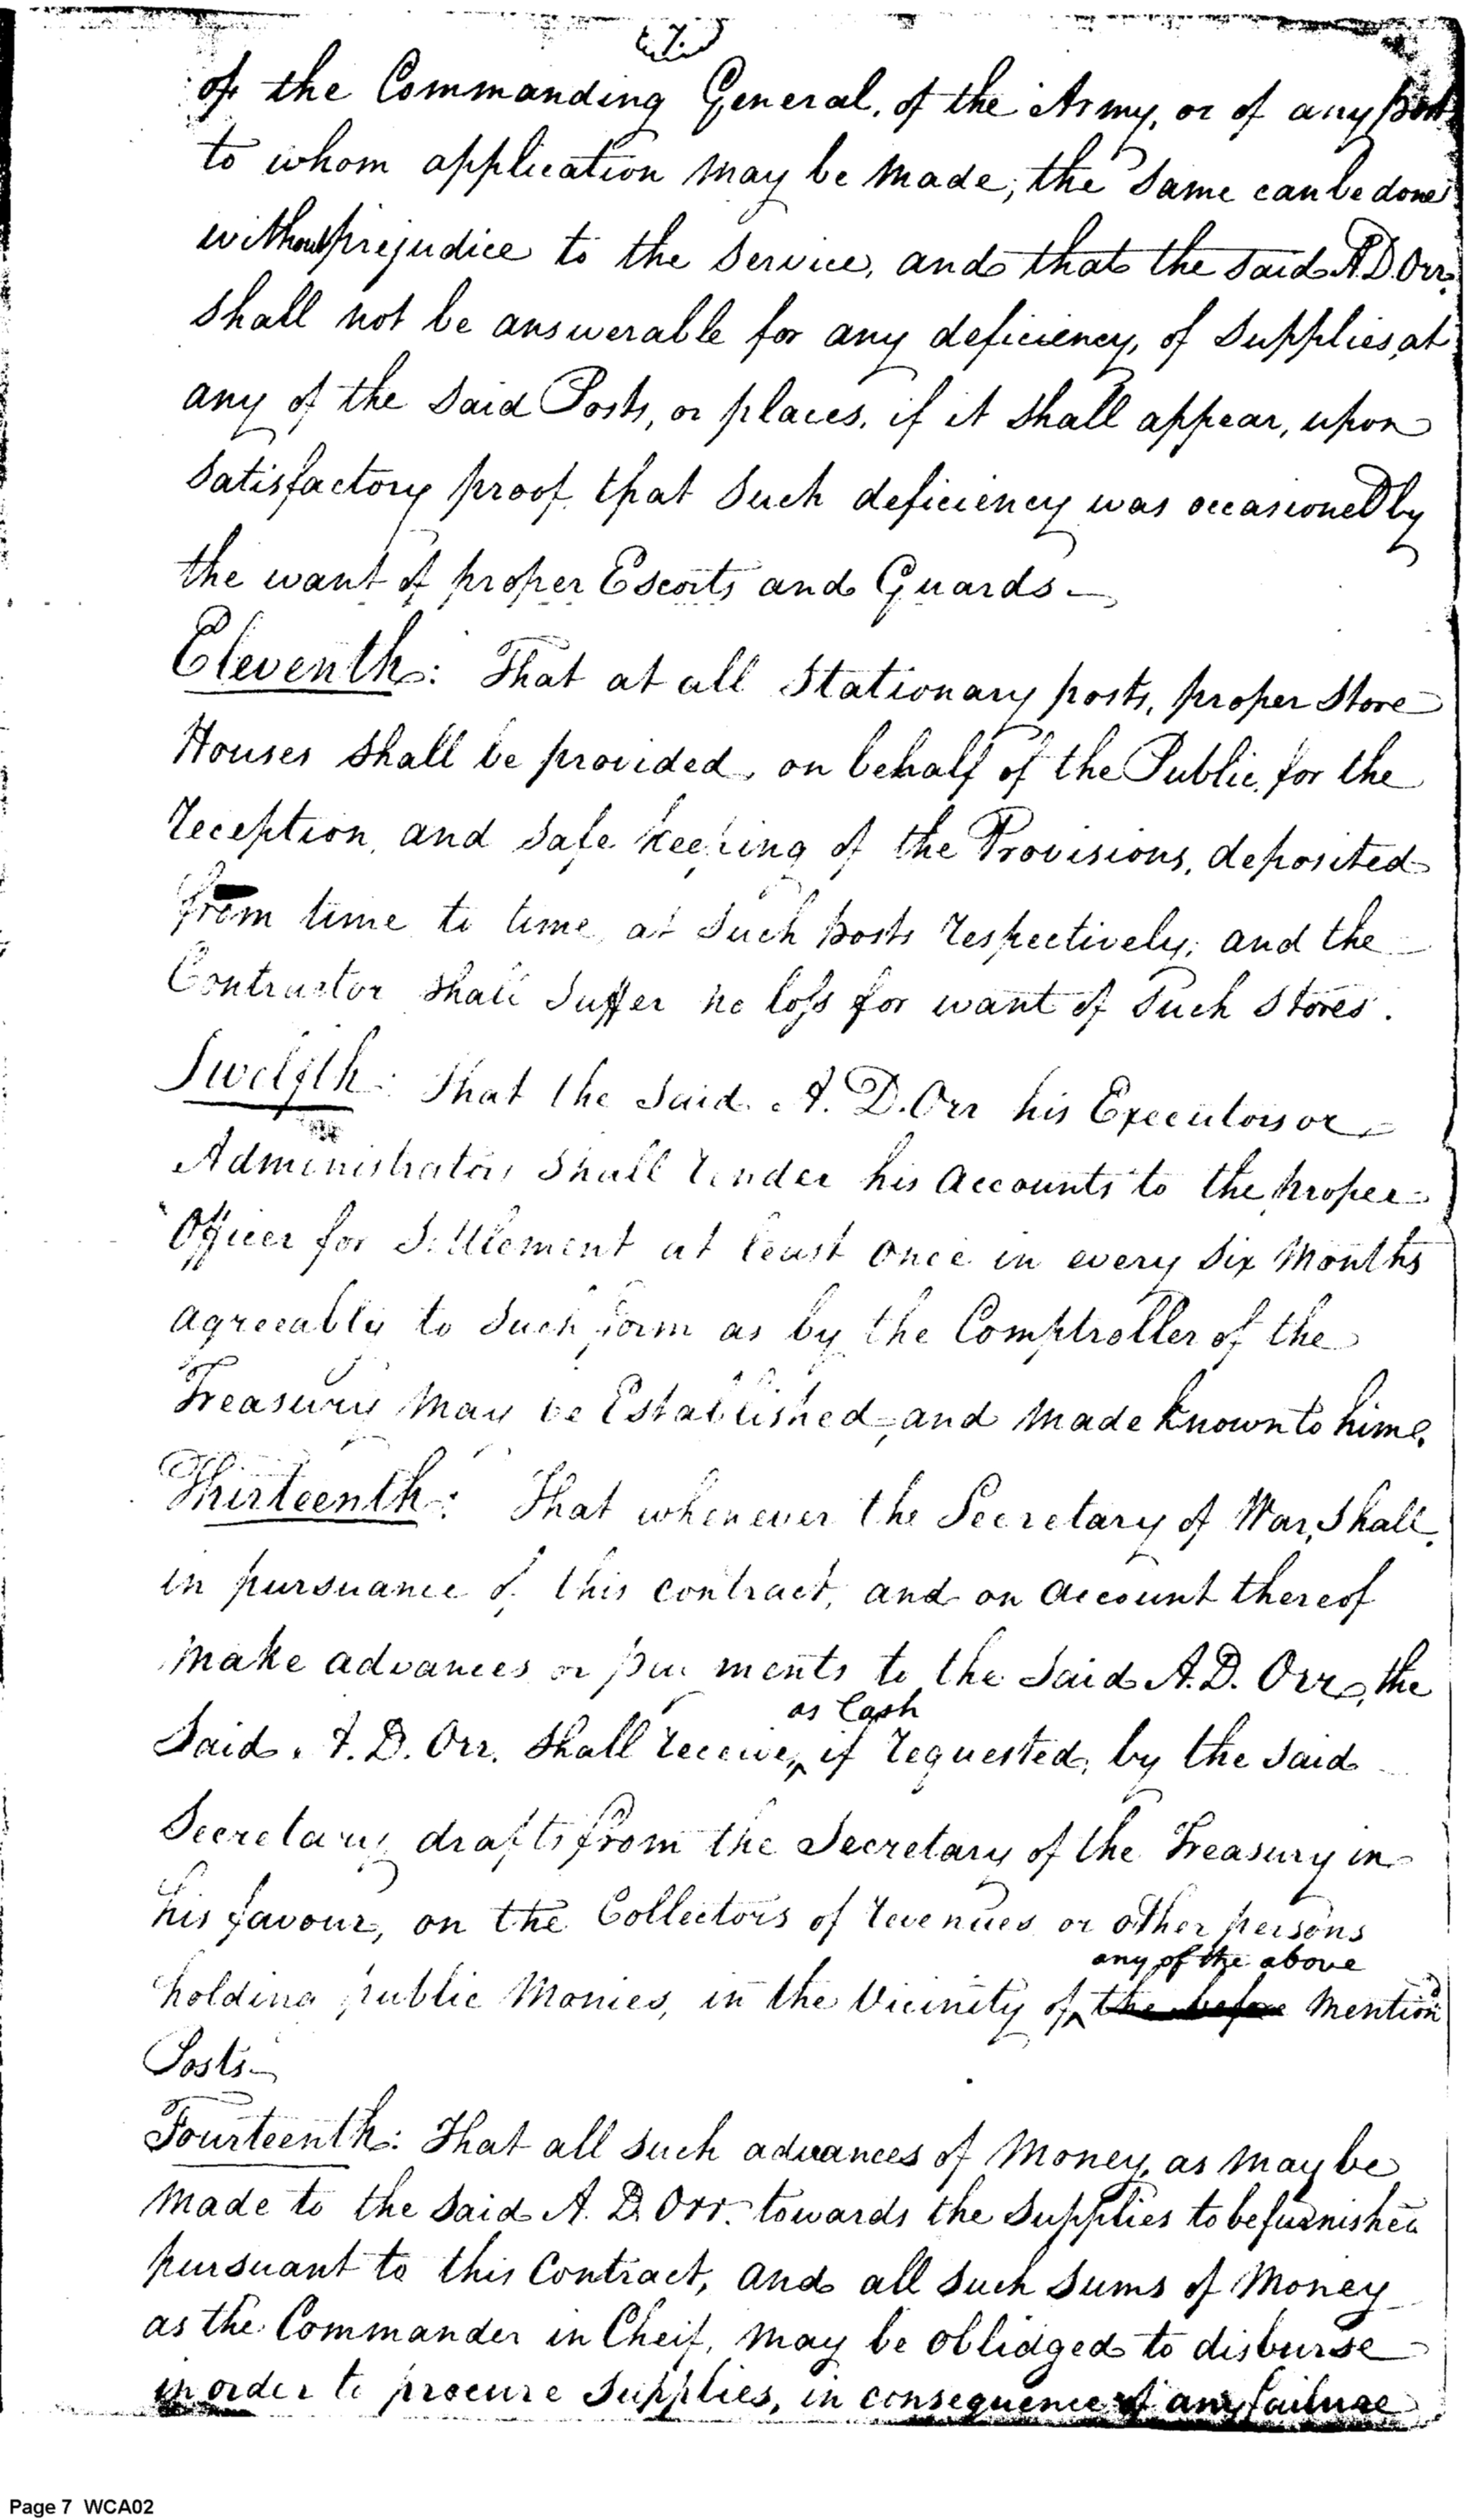 (7.)
of the Commanding General, of the Army, or of any post
to whom application may be made, the same can be done
without prejudice to the service, and that the said A. D. Orr.
shall not be answerable for any deficiency, of supplies, at
any of the said Posts, or places, if it shall appear, upon
satisfactory proof that such deficiency was occasioned by
the want of proper Escorts and Guards —
Eleventh: That at all Stationary posts, proper Store
Houses shall be provided, on behalf of the Public, for the
reception, and safe keeping of the Provisions, deposited
from time to time, at such posts respectively; and the
Contractor shall suffer no loss for want of such stores.
Twelfth: That the said A. D. Orr his Executors or
Administrators shall render his accounts to the proper
Officer for Settlement at least once in every six Months
agreeably to such form as by the Comptroller of the
Treasury may be Established, and made known to him.
Thirteenth: That whenever the Secretary of War, shall,
in pursuance of this contract, and on account thereof
make advances or payments to the said A. D. Orr, the
as Cash
said A. D. Orr. shall receive, if requested, by the said
Secretary drafts from the Secretary of the Treasury in
his favour, on the Collectors of revenues or other persons
any of the above
holding public Monies, in the Vicinity of the before Mention'd
Posts —
Fourteenth: That all such advances of Money, as may be
made to the said A. D. Orr. towards the supplies to be furnished
pursuant to this Contract, and all such sums of Money
as the Commander in Cheif, may be oblidged to disburse
in order to procure supplies, in consequence of any failure
Page 7 WCA02